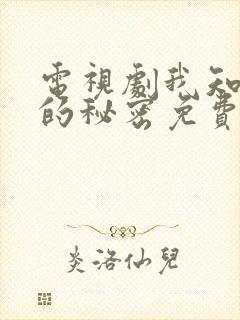 電視劇我知
的秘密免費
炎洛仙兒